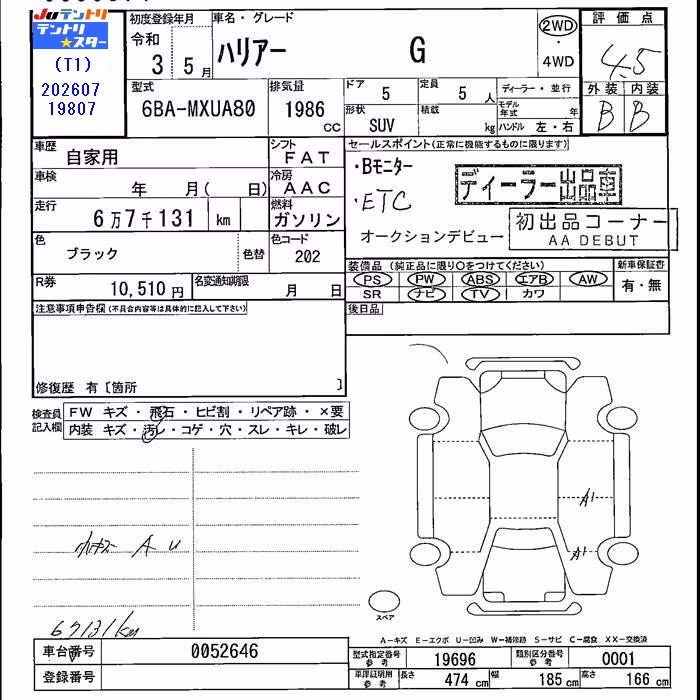 JUテントリ
テントリ
★スター
(T1)
202607
19807
初度登録年月
令和
3 5月
車名・グレード
ハリアー G
2WD
・
4WD
評価点
4.5
外装 内装
B B
型式
6BA-MXUA80
排気量
1986
CC
ドア
5
定員
5 人
形状
SUV
積載
kg
ディーラー・並行
モデル年式 年
ハンドル 左・右
車歴 自家用
シフト
FAT
車検 年 月( 日)
冷房
AAC
走行 6万7千131 km
燃料
ガソリン
色 ブラック 色替
色コード
202
R券 10,510円
名変通知期限 月 日
セールスポイント(正常に機能するものに限ります)
・Bモニター
・ETC
ディーラー出品車
オークションデビュー
初出品コーナー
AA DEBUT
装備品 (純正品に限り○をつけてください)
PS PW ABS エアB AW
SR ナビ TV カワ
新車保証書
有・無
注意事項申告欄(不具合内容等は具体的に記入して下さい)
後日品
修復歴 有〔箇所 〕
検査員
記入欄
FW キズ・飛石・ヒビ割・リペア跡・×要
内装 キズ・汚レ・コゲ・穴・スレ・キレ・破レ
A1
A1
AU
67131km
スペア
A-キズ E-エクボ U-凹み W-補修跡 S-サビ C-腐食 XX-交換済
車台番号 0052646
登録番号
型式指定番号
参考
19696
類別区分番号
参考
0001
車庫証明用
参考
長さ 474 cm
幅 185 cm
高さ 166 cm